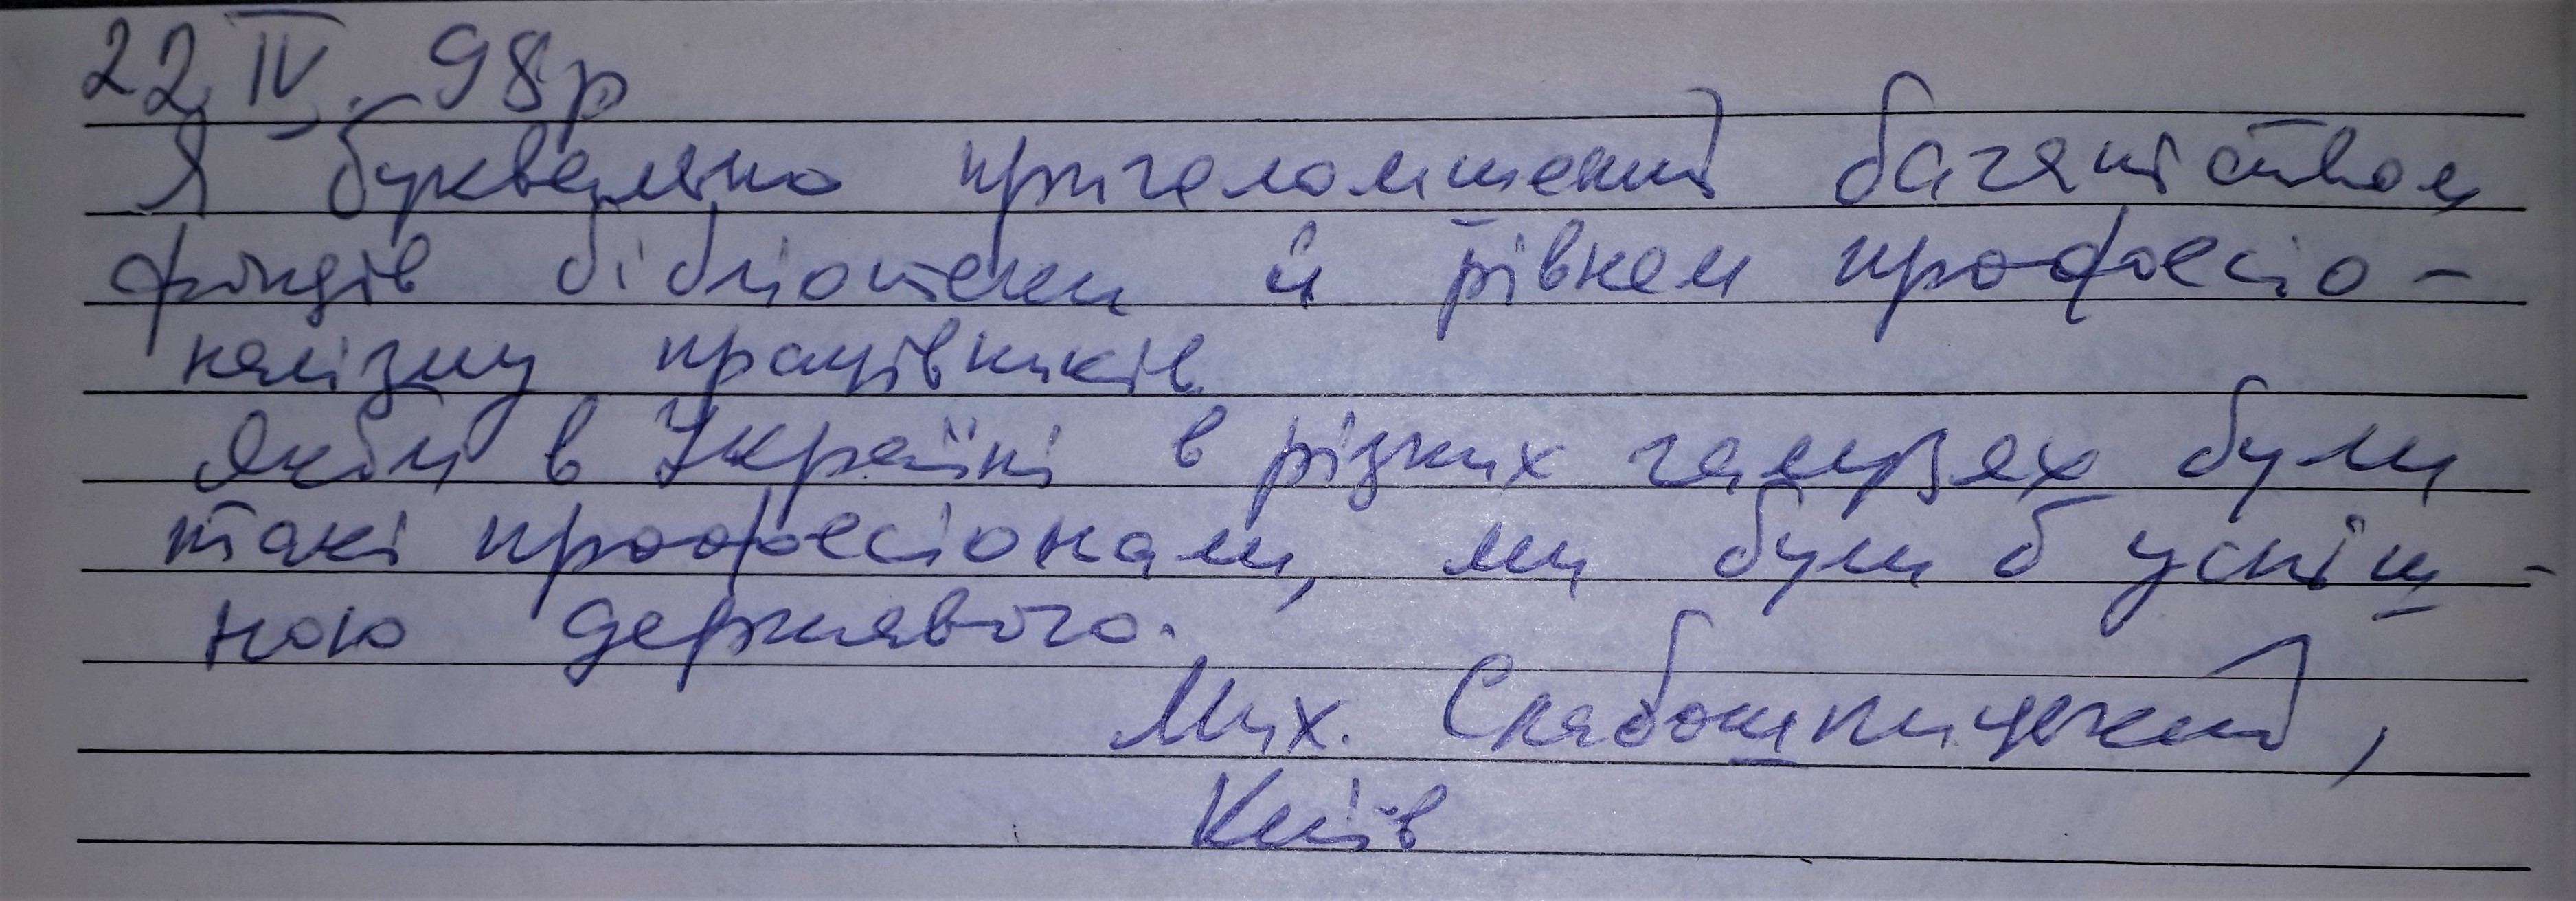 22 IV. 98р
Я буквально приголомшений багатством
фондів бібліотеки й рівнем професіо-
налізму працівників
Якби в Україні в різних галузях були
такі професіонали, ми були б успіш-
ною державого.
Мих. Слабошпицький,
Київ